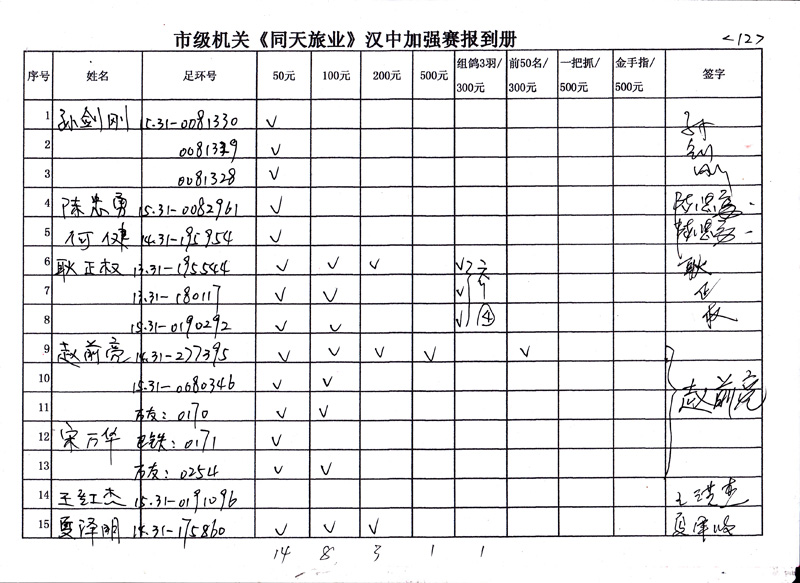 市级机关《同天旅业》汉中加强赛报到册 <12>
序号 姓名 足环号 50元 100元 200元 500元 组鸽3羽/300元 前50名/300元 一把抓/500元 金手指/500元 签字
1 孙剑刚 15.31-0081330 √ 孙
2 0081329 √ 剑
3 0081328 √ 刚
4 陈忠勇 15.31-0082961 √ 陈忠勇
5 何健 14.31-195954 √ 陈忠勇
6 耿正权 13.31-195544 √ √ √ √ 耿
7 13.31-180117 √ √ √ 正
8 15.31-0190292 √ √ √ ④ 权
9 赵前亮 14.31-277395 √ √ √ √ √ 赵前亮
10 15.31-0680346 √ √
11 市友: 0170 √ √
12 宋万华 : 0171 √
13 市友: 0254 √ √
14 王红杰 15.31-0191096 王
15 夏泽明 14.31-175860 √ √ √ 夏泽明
14 8 3 1 1